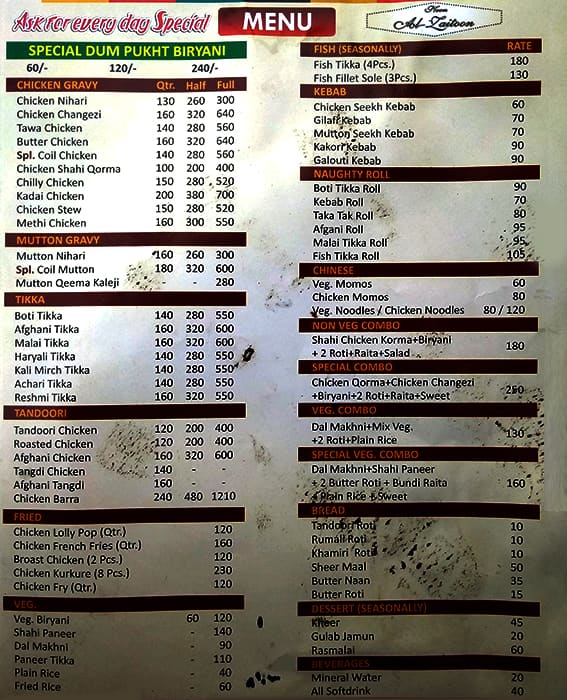 Ask for every day Special
MENU
New
Al-Zaitoon
SPECIAL DUM PUKHT BIRYANI
60/- 120/- 240/-
CHICKEN GRAVY Qtr. Half Full
Chicken Nihari 130 260 300
Chicken Changezi 160 320 640
Tawa Chicken 140 280 560
Butter Chicken 160 320 640
Spl. Coil Chicken 140 280 560
Chicken Shahi Qorma 100 200 400
Chilly Chicken 150 280 520
Kadai Chicken 200 380 700
Chicken Stew 150 280 520
Methi Chicken 160 300 550
MUTTON GRAVY
Mutton Nihari 160 260 300
Spl. Coil Mutton 180 320 600
Mutton Qeema Kaleji - 280
TIKKA
Boti Tikka 140 280 550
Afghani Tikka 160 320 600
Malai Tikka 160 320 600
Haryali Tikka 140 280 550
Kali Mirch Tikka 140 280 550
Achari Tikka 140 280 550
Reshmi Tikka 160 320 550
TANDOORI
Tandoori Chicken 120 200 400
Roasted Chicken 120 200 400
Afghani Chicken 160 320 600
Tangdi Chicken 140 - -
Afghani Tangdi 160 - -
Chicken Barra 240 480 1210
FRIED
Chicken Lolly Pop (Qtr.) 120
Chicken French Fries (Qtr.) 160
Broast Chicken (2 Pcs.) 120
Chicken Kurkure (8 Pcs.) 230
Chicken Fry (Qtr.) 120
VEG.
Veg. Biryani 60 120
Shahi Paneer - 140
Dal Makhni - 90
Paneer Tikka - 110
Plain Rice - 40
Fried Rice - 60
FISH (SEASONALLY) RATE
Fish Tikka (4Pcs.) 180
Fish Fillet Sole (3Pcs.) 130
KEBAB
Chicken Seekh Kebab 60
Gilafi Kebab 70
Mutton Seekh Kebab 70
Kakori Kebab 90
Galouti Kebab 90
NAUGHTY ROLL
Boti Tikka Roll 90
Kebab Roll 70
Taka Tak Roll 80
Afgani Roll 95
Malai Tikka Roll 95
Fish Tikka Roll 105
CHINESE
Veg. Momos 60
Chicken Momos 80
Veg. Noodles / Chicken Noodles 80 / 120
NON VEG COMBO
Shahi Chicken Korma+Biryani
+ 2 Roti+Raita+Salad 180
SPECIAL COMBO
Chicken Qorma+Chicken Changezi
+Biryani+2 Roti+Raita+Sweet 250
VEG. COMBO
Dal Makhni+Mix Veg.
+2 Roti+Plain Rice 130
SPECIAL VEG. COMBO
Dal Makhni+Shahi Paneer
+ 2 Butter Roti + Bundi Raita 160
+ Plain Rice + Sweet
BREAD
Tandoori Roti 10
Rumali Roti 10
Khamiri Roti 10
Sheer Maal 50
Butter Naan 35
Butter Roti 15
DESSERT (SEASONALLY)
Kheer 45
Gulab Jamun 20
Rasmalai 60
BEVERAGES
Mineral Water 20
All Softdrink 40